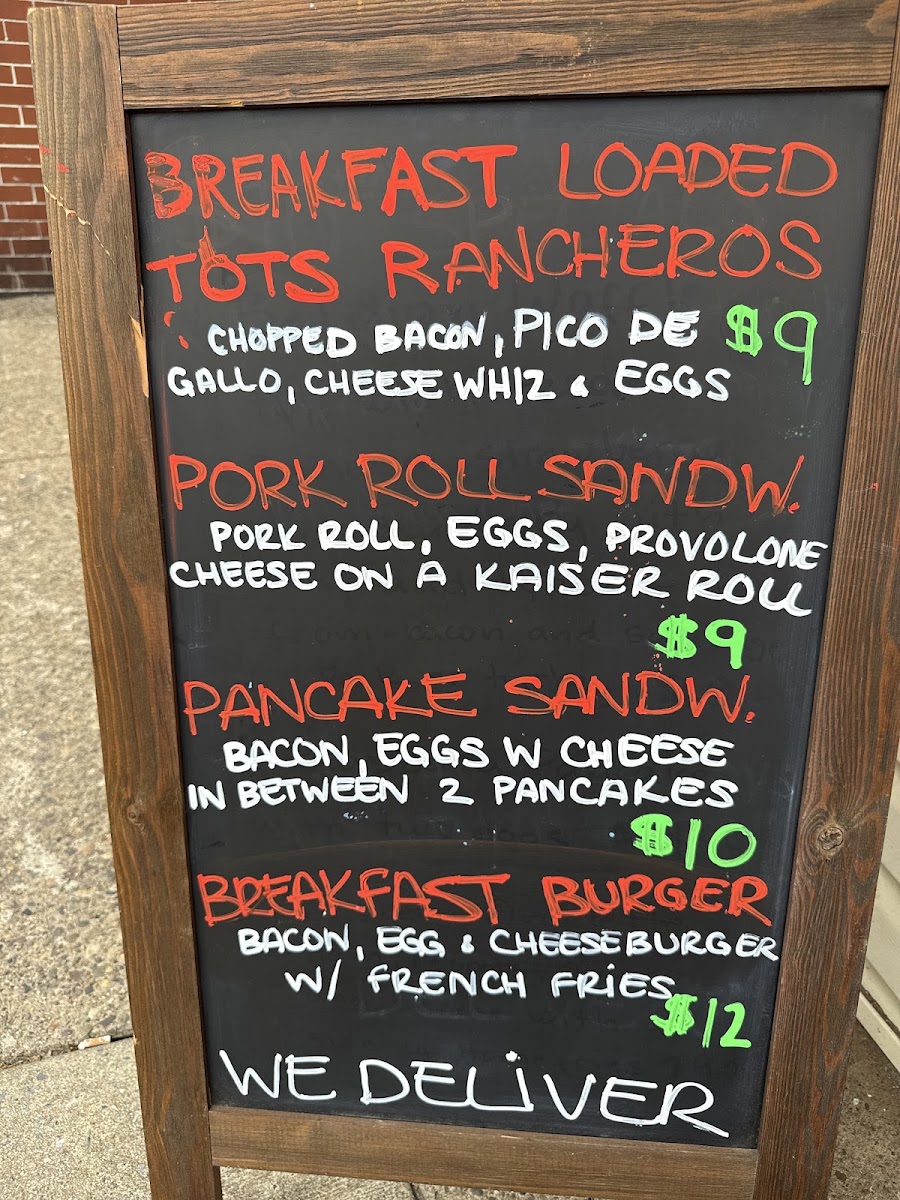 BREAKFAST LOADED
TOTS RANCHEROS
CHOPPED BACON, PICO DE $9
GALLO, CHEESE WHIZ & EGGS
PORK ROLL SANDW.
PORK ROLL, EGGS, PROVOLONE
CHEESE ON A KAISER ROLL
$9
PANCAKE SANDW.
BACON, EGGS W CHEESE
IN BETWEEN 2 PANCAKES
$10
BREAKFAST BURGER
BACON, EGG & CHEESEBURGER
W/ FRENCH FRIES
$12
WE DELIVER